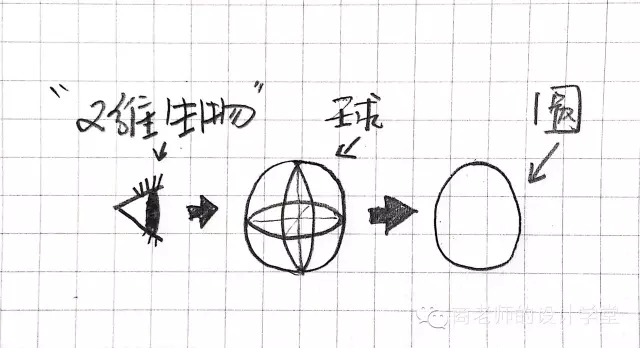 "2维生物"
球
圆
商老师的设计学堂